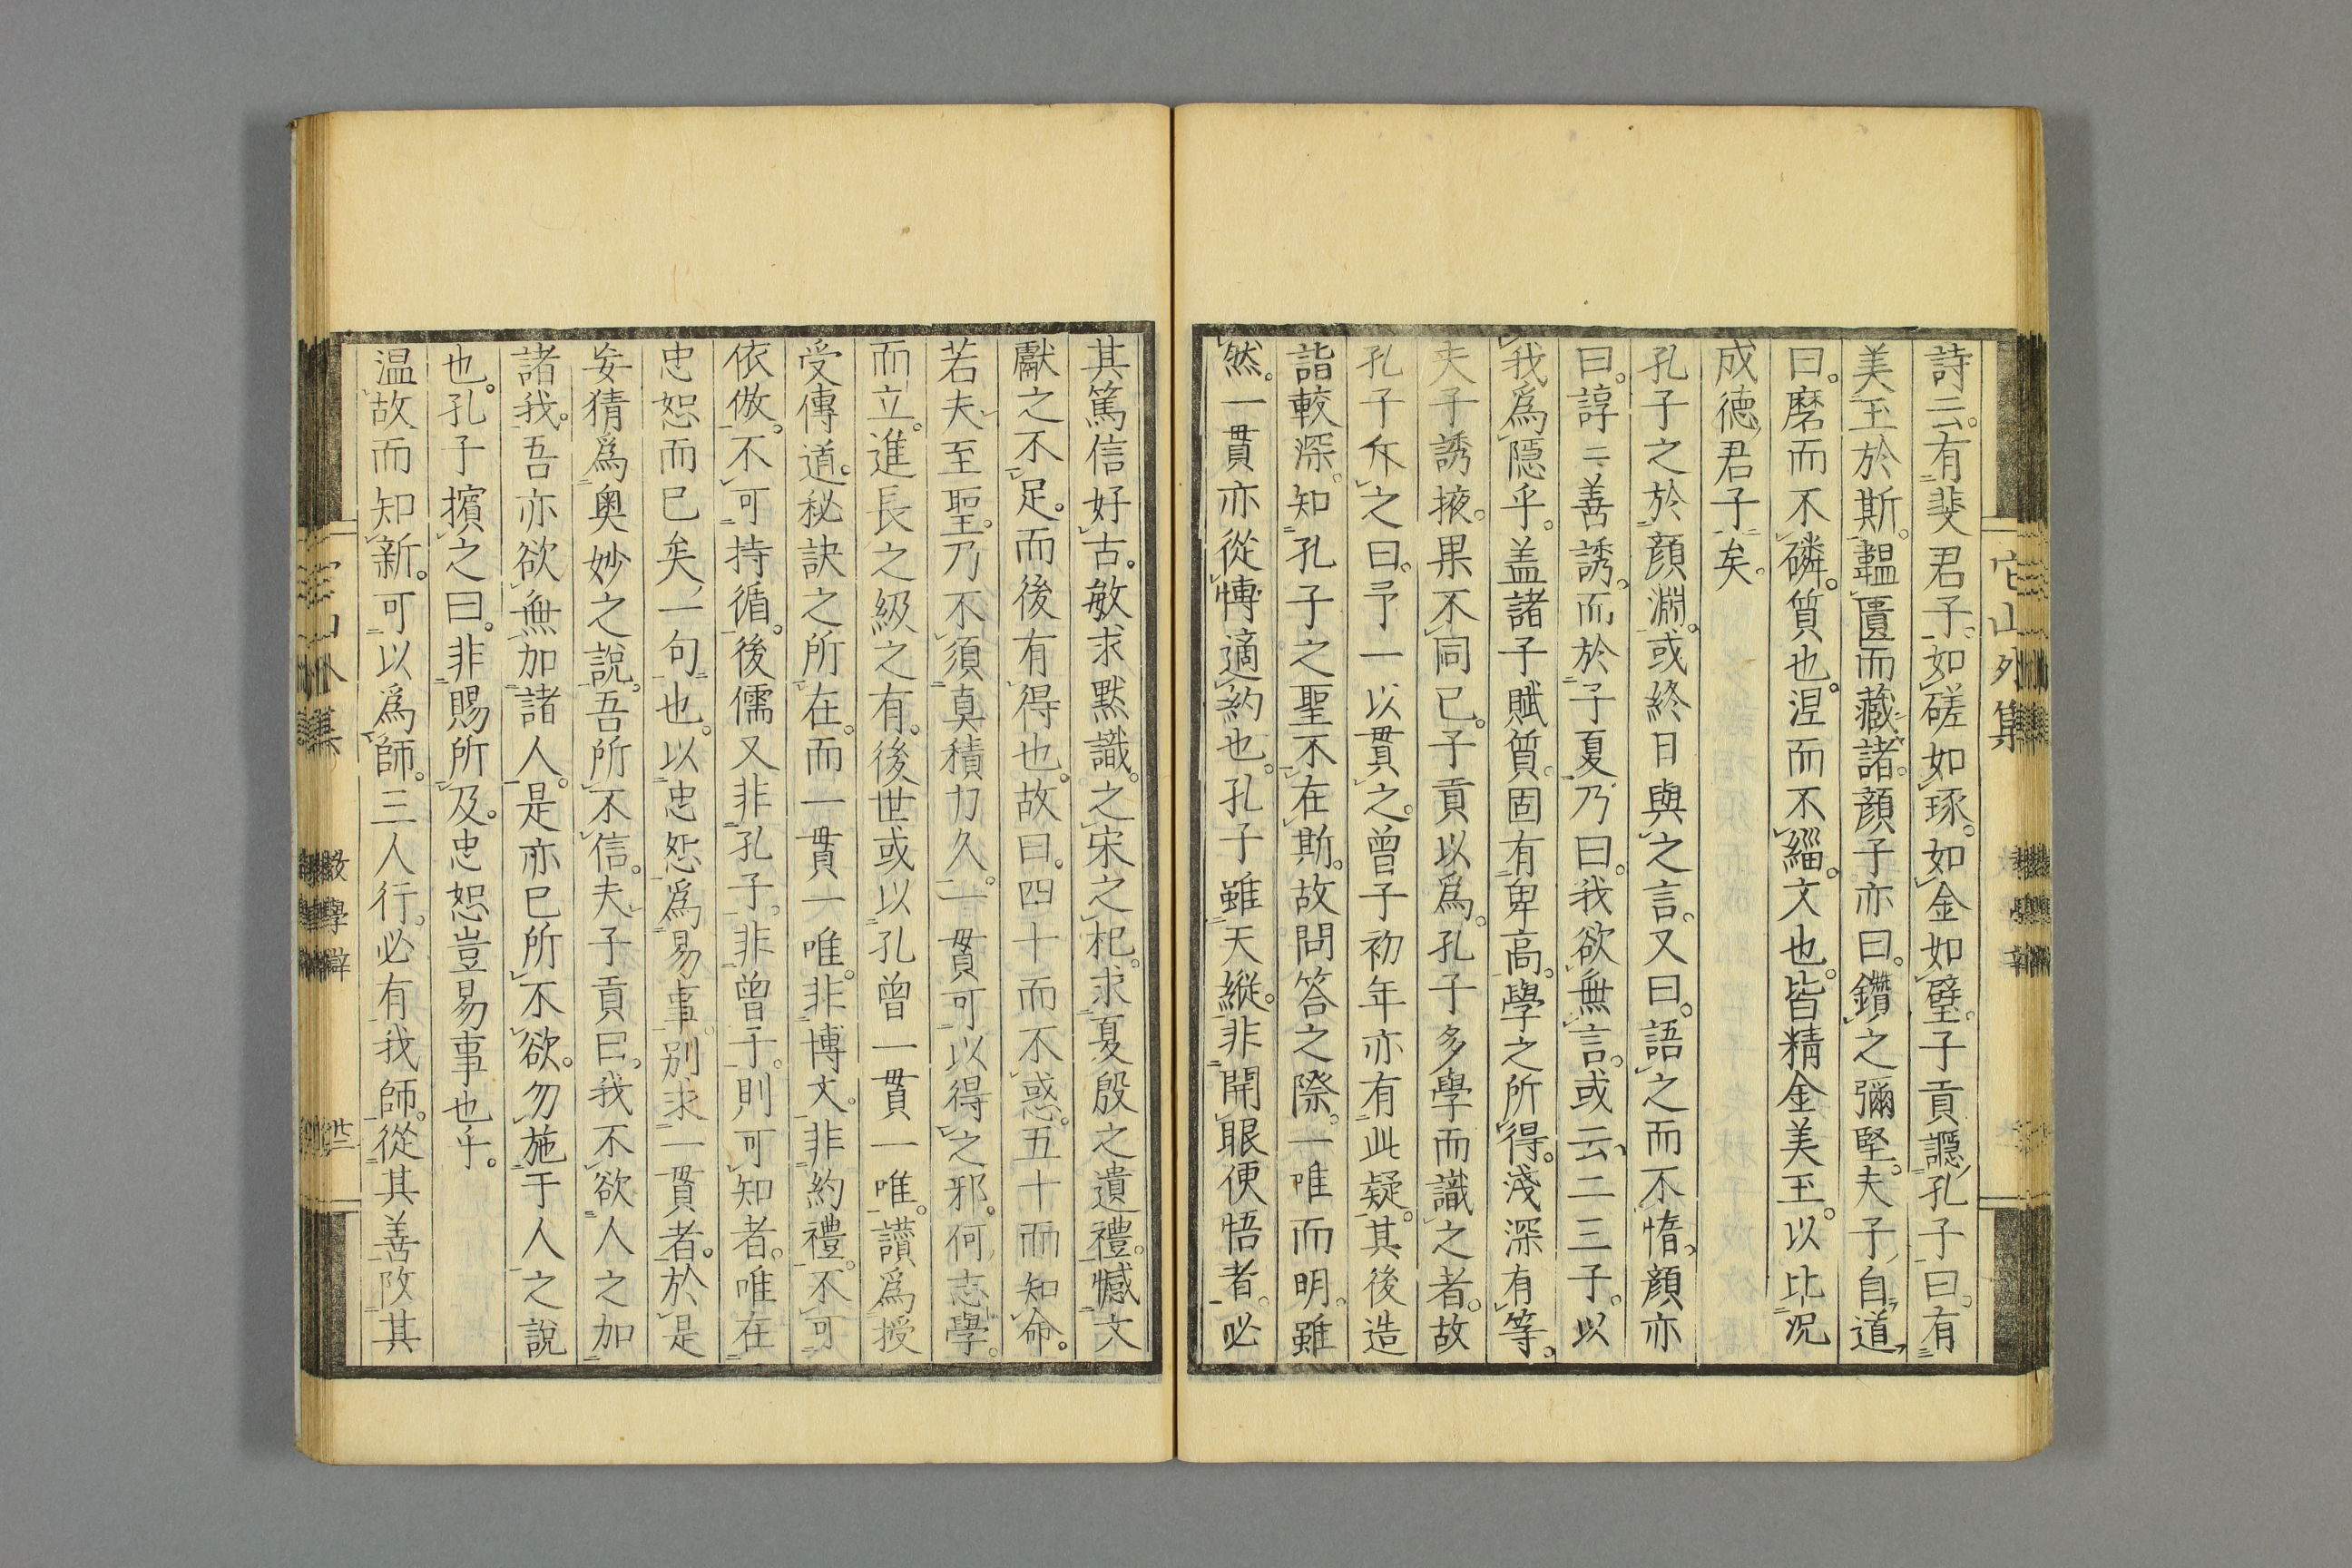 詩云。有斐君子。如磋如琢。如金如璧。子貢譿孔子曰。有
美玉於斯。韞匱而藏諸。顏子亦曰。鑽之彌堅。夫子自道
曰。磨而不磷。質也。涅而不緇。文也。皆精金美玉。以比況
成德君子矣。
孔子之於顏淵。或終日與之言。又曰。語之而不惰。顏亦
曰。諄〻善誘。而於子夏乃曰。我欲無言。或云、二三子。以
我爲隱乎。盖諸子賦質。固有卑高。學之所得。淺深有等。
夫子誘掖。果不同已。子貢以爲。孔子多學而識之者。故
孔子斥之曰。予一以貫之。曾子初年亦有此疑。其後造
詣較深。知孔子之聖不在斯。故問答之際。一唯而明。雖
然。一貫亦從博適約也。孔子雖天縱。非開眼便悟者。必
其篤信好古。敏求默識。之宋之杞。求夏殷之遺禮。憾文
獻之不足。而後有得也。故曰。四十而不惑。五十而知命。
若夫至聖。乃不須真積力久。一貫可以得之邪。何志學。
而立。進長之級之有。後世或以孔曾一貫一唯。讚爲授
受傳道。秘訣之所在。而一貫一唯。非博文。非約禮。不可
依倣。不可持循。後儒又非孔子。非曾子。則可知者。唯在
忠恕而已矣、一句也。以忠恕爲易事。別求一貫者。於是
妄猜爲奧妙之說。吾所不信。夫子貢曰。我不欲人之加
諸我。吾亦欲無加諸人。是亦已所不欲。勿施于人之說
也。孔子擯之曰。非賜所及。忠恕豈易事也乎。
温故而知新。可以爲師。三人行。必有我師。從其善改其
它山外集
教學辯